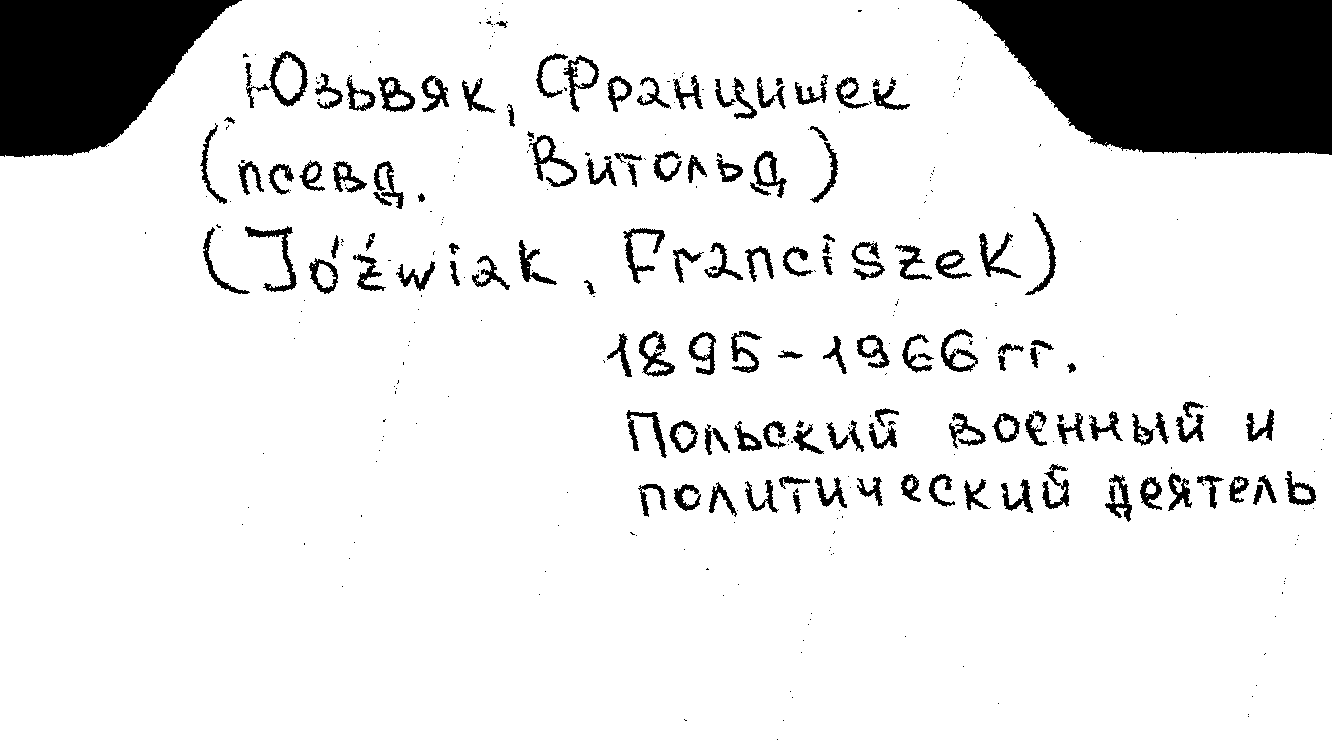 Юзьвяк, Францишек
(псевд. Витольд)
(Jóźwiak, Franciszek)
1895-1966 гг.
Польский военный и
политический деятель